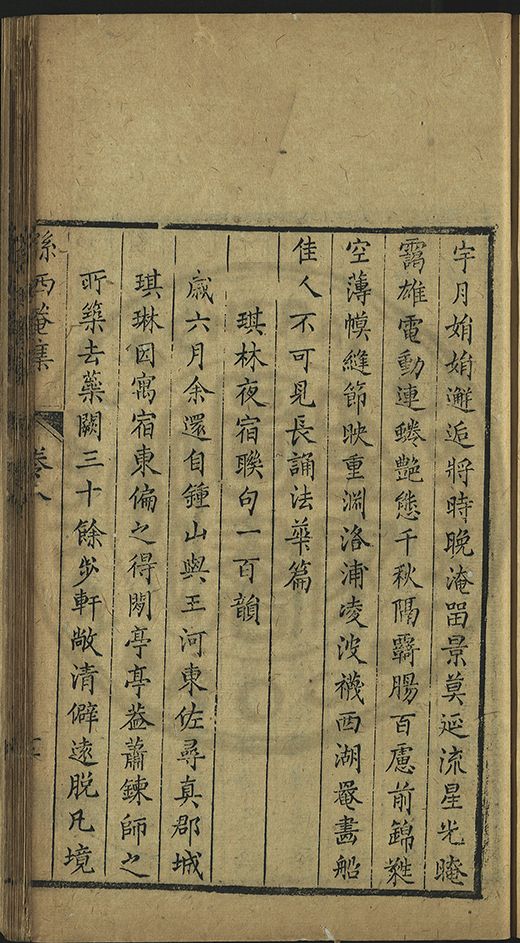 宇月娟娟邂逅將時晚淹留景莫延流星光晻
靄雄電動連蜷艷態千秋隔羈腸百慮前錦㽔
空薄幙縫節映重淵洛浦凌波襪西湖罨畫船
佳人不可見長誦法華篇
琪林夜宿聯句一百韻
歲六月余還自鍾山與王河東佐尋真郡城
琪琳因寓宿東偏之得閑亭亭葢蕭鍊師之
所築去藥闕三十餘步軒敞清僻遠脫凡境
孫西菴集
卷八